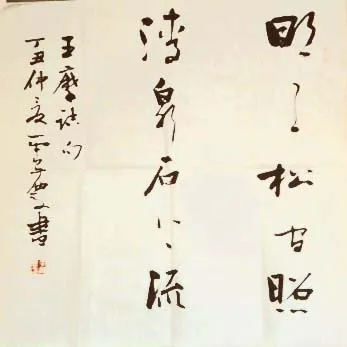 明月松间照
清泉石上流
王摩詰句
丁丑仲夏書